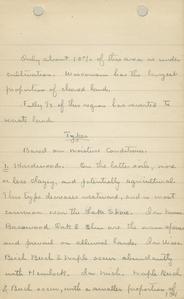 Only about 10% of this area is under
cultivation. Wisconsin has the largest
proportion of cleared land.
Fully ⅓ of this region has reverted to
waste land.
Types
Based on Moisture Conditions.
1. Hardwoods. On the better soils, more
or less clayey, and potentially agricultural.
This type decreases westward, and is most
common near the Lake Shore. In Minn
Basswood Oak & Elm are the main species
and prevail on alluvial lands. In Wisc.
Birch Beech & Maple occur abundantly
with Hemlock. In Mich. Maple Birch
& Beech occur, with a smaller proportion of